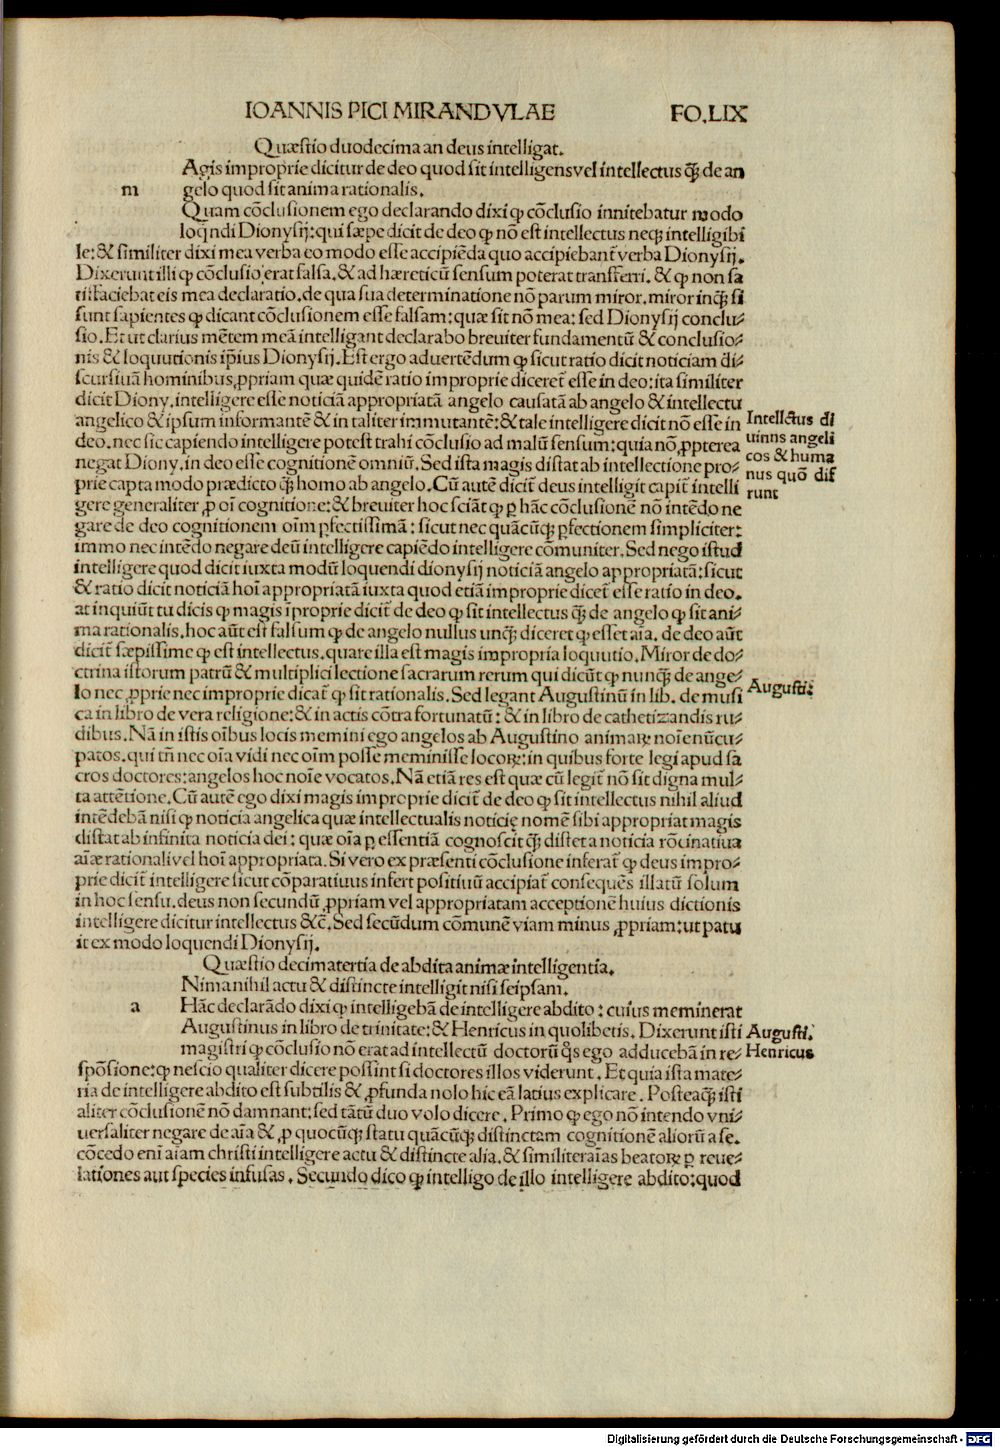 IOANNIS PICI MIRANDVLAE FO.LIX
Quæstio duodecima an deus intelligat.
Agis improprie dicitur de deo quod sit intelligens vel intellectus q̄ȝ de an
m gelo quod sit anima rationalis.
Quam cōclusionem ego declarando dixi ꝙ cōclusio innitebatur modo
loq̄ndi Dionysij: qui sæpe dicit de deo ꝙ nō est intellectus neqȝ intelligibi
le: & similiter dixi mea verba eo modo esse accipiēda quo accipiebant̄ verba Dionysij.
Dixerunt illi ꝙ cōclusio erat falsa. & ad hæreticū sensum poterat transferri. & ꝙ non sa
tisfaciebat eis mea declaratio. de qua sua determinatione nō parum miror. miror inq̄ȝ si
sunt sapientes ꝙ dicant cōclusionem esse falsam: quæ sit nō mea: sed Dionysij conclu⸗
sio. Et ut clarius mētem meā intelligant declarabo breuiter fundamentū & conclusio⸗
nis & loquutionis ip̄ius Dionysij. Est ergo aduertēdum ꝙ sicut ratio dicit noticiam di⸗
scursiuā hominibus ꝓpriam quæ quidē ratio improprie diceret̄ esse in deo: ita similiter
dicit Diony. intelligere esse noticiā appropriatā angelo causatā ab angelo & intellectu
angelico & ipsum informantē & in taliter immutantē: & tale intelligere dicit nō esse in
deo. nec sic capiendo intelligere potest trahi cōclusio ad malū sensum: quia nō ꝓpterea
negat Diony. in deo esse cognitionē omniū. Sed ista magis distat ab intellectione pro⸗
prie capta modo prædicto q̄ȝ homo ab angelo. Cū autē dicit̄ deus intelligit capit̄ intelli
gere generaliter ꝓ oi̅ cognitione: & breuiter hoc sciāt ꝙ ꝑ hāc cōclusionē nō intēdo ne
gare de deo cognitionem oi̅m ꝑfectissimā: sicut nec quācūqȝ ꝑfectionem simpliciter:
immo nec intēdo negare deū intelligere capiēdo intelligere cōmuniter. Sed nego istud
intelligere quod dicit iuxta modū loquendi dionysij noticiā angelo appropriatā: sicut
& ratio dicit noticiā hoi̅ appropriatā iuxta quod etiā improprie dicet̄ esse ratio in deo.
at inquiūt tu dicis ꝙ magis īproprie dicit̄ de deo ꝙ sit intellectus q̄ȝ de angelo ꝙ sit ani⸗
ma rationalis. hoc aūt est falsum ꝙ de angelo nullus unq̄ȝ diceret ꝙ esset aīa. de deo aūt
dicit̄ sæpissime ꝙ est intellectus. quare illa est magis impropria loquutio. Miror de do⸗
ctrina istorum patrū & multiplici lectione sacrarum rerum qui dicūt ꝙ nunq̄ȝ de ange⸗
lo nec ꝓprie nec improprie dicat̄ ꝙ sit rationalis. Sed legant Augustinū in lib. de musi
ca in libro de vera religione: & in actis cōtra fortunatū: & in libro de cathetizandis ru⸗
dibus. Nā in istis oi̅bus locis memini ego angelos ab Augustino animaꝝ noi̅e nūcu⸗
patos. qui tn̄ nec oi̅a vidi nec oi̅m posse meminisse locoꝝ: in quibus forte legi apud sa
cros doctores: angelos hoc noi̅e vocatos. Nā etiā res est quæ cū legit̄ nō sit digna mul⸗
ta attētione. Cū autē ego dixi magis improprie dicit̄ de deo ꝙ sit intellectus nihil aliud
intēdebā nisi ꝙ noticia angelica quæ intellectualis noticię nomē sibi appropriat magis
distat ab infinita noticia dei: quæ oi̅a ꝑ essentiā cognoscit q̄ȝ distet a noticia rōcinatiua
aīæ rationali vel hoi̅ appropriata. Si vero ex præsenti cōclusione inferat̄ ꝙ deus impro⸗
prie dicit̄ intelligere sicut cōparatiuus infert positiuū accipiat̄ consequēs illatū solum
in hoc sensu. deus non secundū ꝓpriam vel appropriatam acceptionē huius dictionis
intelligere dicitur intellectus &c̄. Sed secūdum cōmunē viam minus ꝓpriam: ut patu
it ex modo loquendi Dionysij.
Quæstio decimatertia de abdita animæ intelligentia.
Nima nihil actu & distincte intelligit nisi seipsam.
a Hāc declarādo dixi ꝙ intelligebā de intelligere abdito: cuius meminerat
Augustinus in libro de trinitate: & Henricus in quolibetis. Dixerunt isti
magistri ꝙ cōclusio nō erat ad intellectū doctorū q̄s ego adducebā in re⸗
spōsione: ꝙ nescio qualiter dicere possint si doctores illos viderunt. Et quia ista mate⸗
ria de intelligere abdito est subtilis & ꝓfunda nolo hic eā latius explicare. Posteaq̄ȝ isti
aliter cōclusionē nō damnant: sed tātū duo volo dicere. Primo ꝙ ego nō intendo vni⸗
uersaliter negare de aīa & ꝓ quocūqȝ statu quācūqȝ distinctam cognitionē aliorū a se.
cōcedo eni̅ aīam christi intelligere actu & distincte alia. & similiter aīas beatoꝝ ꝑ reue⸗
lationes aut species infusas. Secundo dico ꝙ intelligo de illo intelligere abdito: quod
Intellectus di
uinns angeli
cos & huma
nus quō dif
runt
Augusti:
Augusti.
Henricus
Digitalisierung gefördert durch die Deutsche Forschungsgemeinschaft - DFG